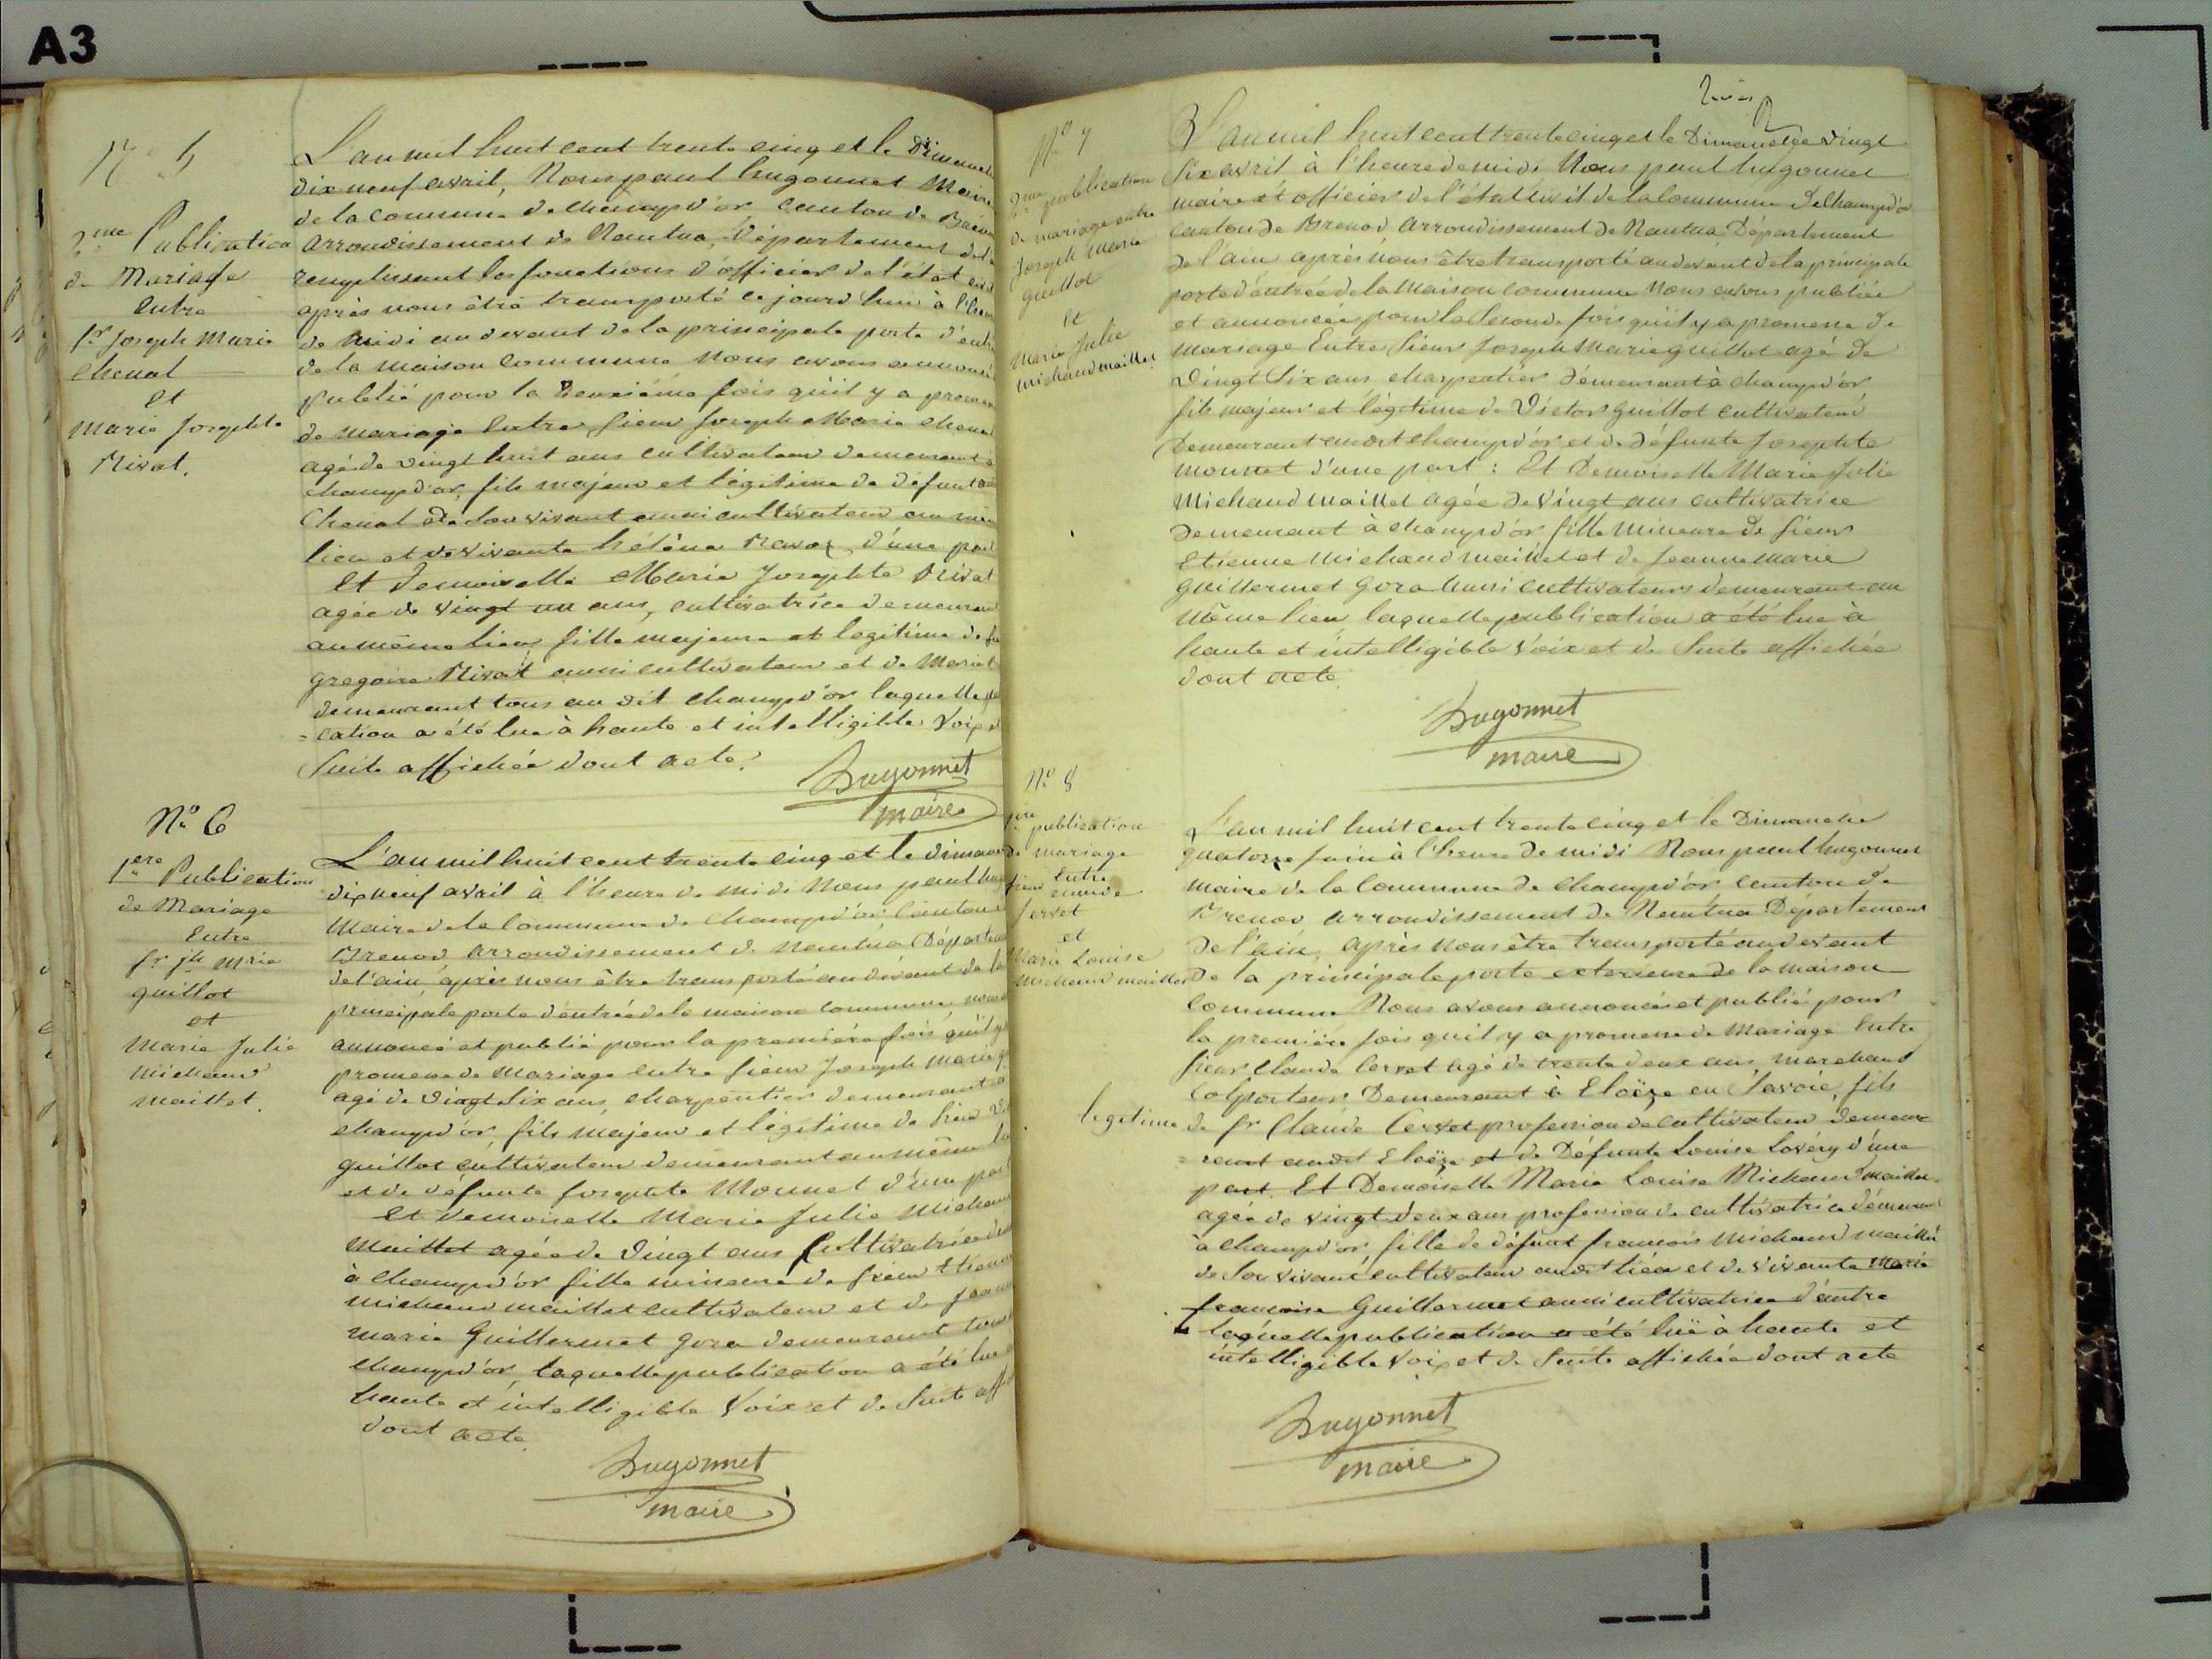 A3
N° 5
2me Publication
de Mariage
Entre
sr Joseph Marie
Chenal
Et
Marie Josephte
Nivat.
L'an mil huit cent trente cinq et le Dimanch
dix neuf avril, Nous paul hugonnet Maire
de la Commune de champd'or canton de Bréno
arrondissement de Nantua, Département de l
remplissant les fonctions d'officier de l'état civil
après nous être transporté ce jourd'hui à l'heu
de Midi au devant de la principale porte d'entr
de la maison commune Nous avons annoncé
publié pour la Deuxième fois qu'il y a promes
de mariage Entre sieur Joseph Marie chena
agé de vingt huit ans cultivateur demeurant à
champd'or, fils majeur et légitime de défunt
Chenal de son vivant aussi cultivateur au mêm
lieu et de vivante hélène Ravoz d'une part
Et Demoiselle Marie Josephte Nivat
agée de vingt un ans, cultivatrice demeurant
au même lieu, fille majeure et legitime de
gregoire Nivat aussi cultivateur et de Mariet
demeurant tous au dit champd'or laquelle p
=cation a été lue à haute et intelligible Voix et
Suite affichée dont acte.
hugonnet
maire
N° 6
1ere Publication
de Mariage
Entre
sr jh Mrie
guillot
et
Marie Julie
Michaud
Maillet.
L'an mil huit cent trente cinq et le dimanc
dix neuf avril à l'heure de midi Nous paul hu
Maire de la Commune de Champd'or Canton
Brenod arrondissement de Nantua Départem
de l'ain, après nous être transporté au devant de la
principale porte d'entrée de la maison commune, nous
annoncé et publié pour la première fois qu'il y
promesse de Mariage entre sieur Joseph Marie g
agé de Vingt Six ans, charpentier demeurant à
champd'or, fils majeur et légitime de Sieur Vi
guillot cultivateur demeurant au même li
et de défunte Josephte Mounet d'une part
Et demoiselle Marie Julie Michau
Maillet agée de Vingt ans Cultivatrice dem
à Champd'or fille mineure de sieur Etienn
Michaud maillet cultivateur et de Jeann
Marie Guillermet Gora demeurant tous
champd'or, laquelle publication a été lue
haute et intelligible Voix et de Suite aff
dont acte.
hugonnet
maire
N° 7
2me publication
de mariage entre
Joseph Marie
guillot
Et
Marie Julie
michaud maillet
L'an mil huit cent trente cinq et le Dimanche Vingt
Six avril à l'heure de midi Nous paul hugonnet
maire et officier de l'état civil de la Commune de Champd'or
Canton de Brenod arrondissement de Nantua Département
de l'ain après nous être transporté au devant de la principale
porte d'entrée de la Maison commune Nous avons publiée
et annoncée pour la Seconde fois qu'il y a promesse de
Mariage Entre Sieur Joseph Marie guillot agé de
Vingt Six ans charpentier Démeurant à champd'or
fils majeur et légitime de Victor guillot cultivateur
Demeurant audit champd'or et de défunte Josephte
mounet d'une part : Et Demoiselle Marie Julie
Michaud maillet agée de Vingt ans cultivatrice
demeurant à champd'or fille Mineure de sieur
Etienne Michaud maillet et de Jeanne Marie
guillermet gora aussi cultivateurs demeurant au
même lieu laquelle publication a été lue à
haute et intelligible Voix et de Suite affichée
dont acte.
hugonnet
maire
N° 8
1ère publication
de mariage
Entre
sieur claude
servet
et
Marie Louise
Michaud maillet
L'an mil huit cent trente cinq et le Dimanche
quatorze juin à l'heure de midi Nous paul hugonnet
maire de la Commune de Champd'or, canton de
Brenod arrondissement de Nantua Département
de l'ain, après nous être transporté au devant
de la principale porte exterieure de la maison
Commune Nous avons annoncé et publié pour
la première fois qu'il y a promesse de Mariage Entre
sieur Claude Servet agé de trente deux ans, Marchand
Colporteur Demeurant à Eloëze en Savoie, fils
legitime de sr Claude Servet profession de cultivateur demeu
=rant audit Eloëze et de Défunte Louise Lovéry d'une
part. Et Demoiselle Marie Louise Michaud maillet
agée de vingt deux ans profession de cultivatrice démeurant
à champd'or, fille de défunt francois Michaud maillet
de Son vivant cultivateur audit lieu et de vivante Marie
francoise Guillermet aussi cultivatrice d'autre
laquelle publication a été luë à haute et
intelligible Voix et de Suite affichée dont acte
hugonnet
maire